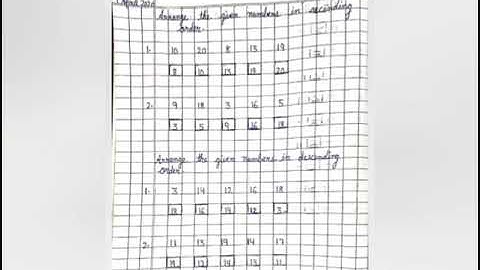 Arrange the given numbers in ascending
order.
1. 10 20 8 13 19
8 10 13 19 20
2. 9 18 3 16 5
3 5 9 16 18
Arrange the given numbers in descending
order.
1. 3 14 12 16 18
18 16 14 12 3
2. 11 13 19 14 17
19 17 14 13 11